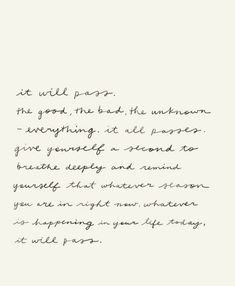 it will pass.
the good, the bad, the unknown
- everything. it all passes.
give yourself a second to
breathe deeply and remind
yourself that whatever season
you are in right now, whatever
is happening in your life today,
it will pass.